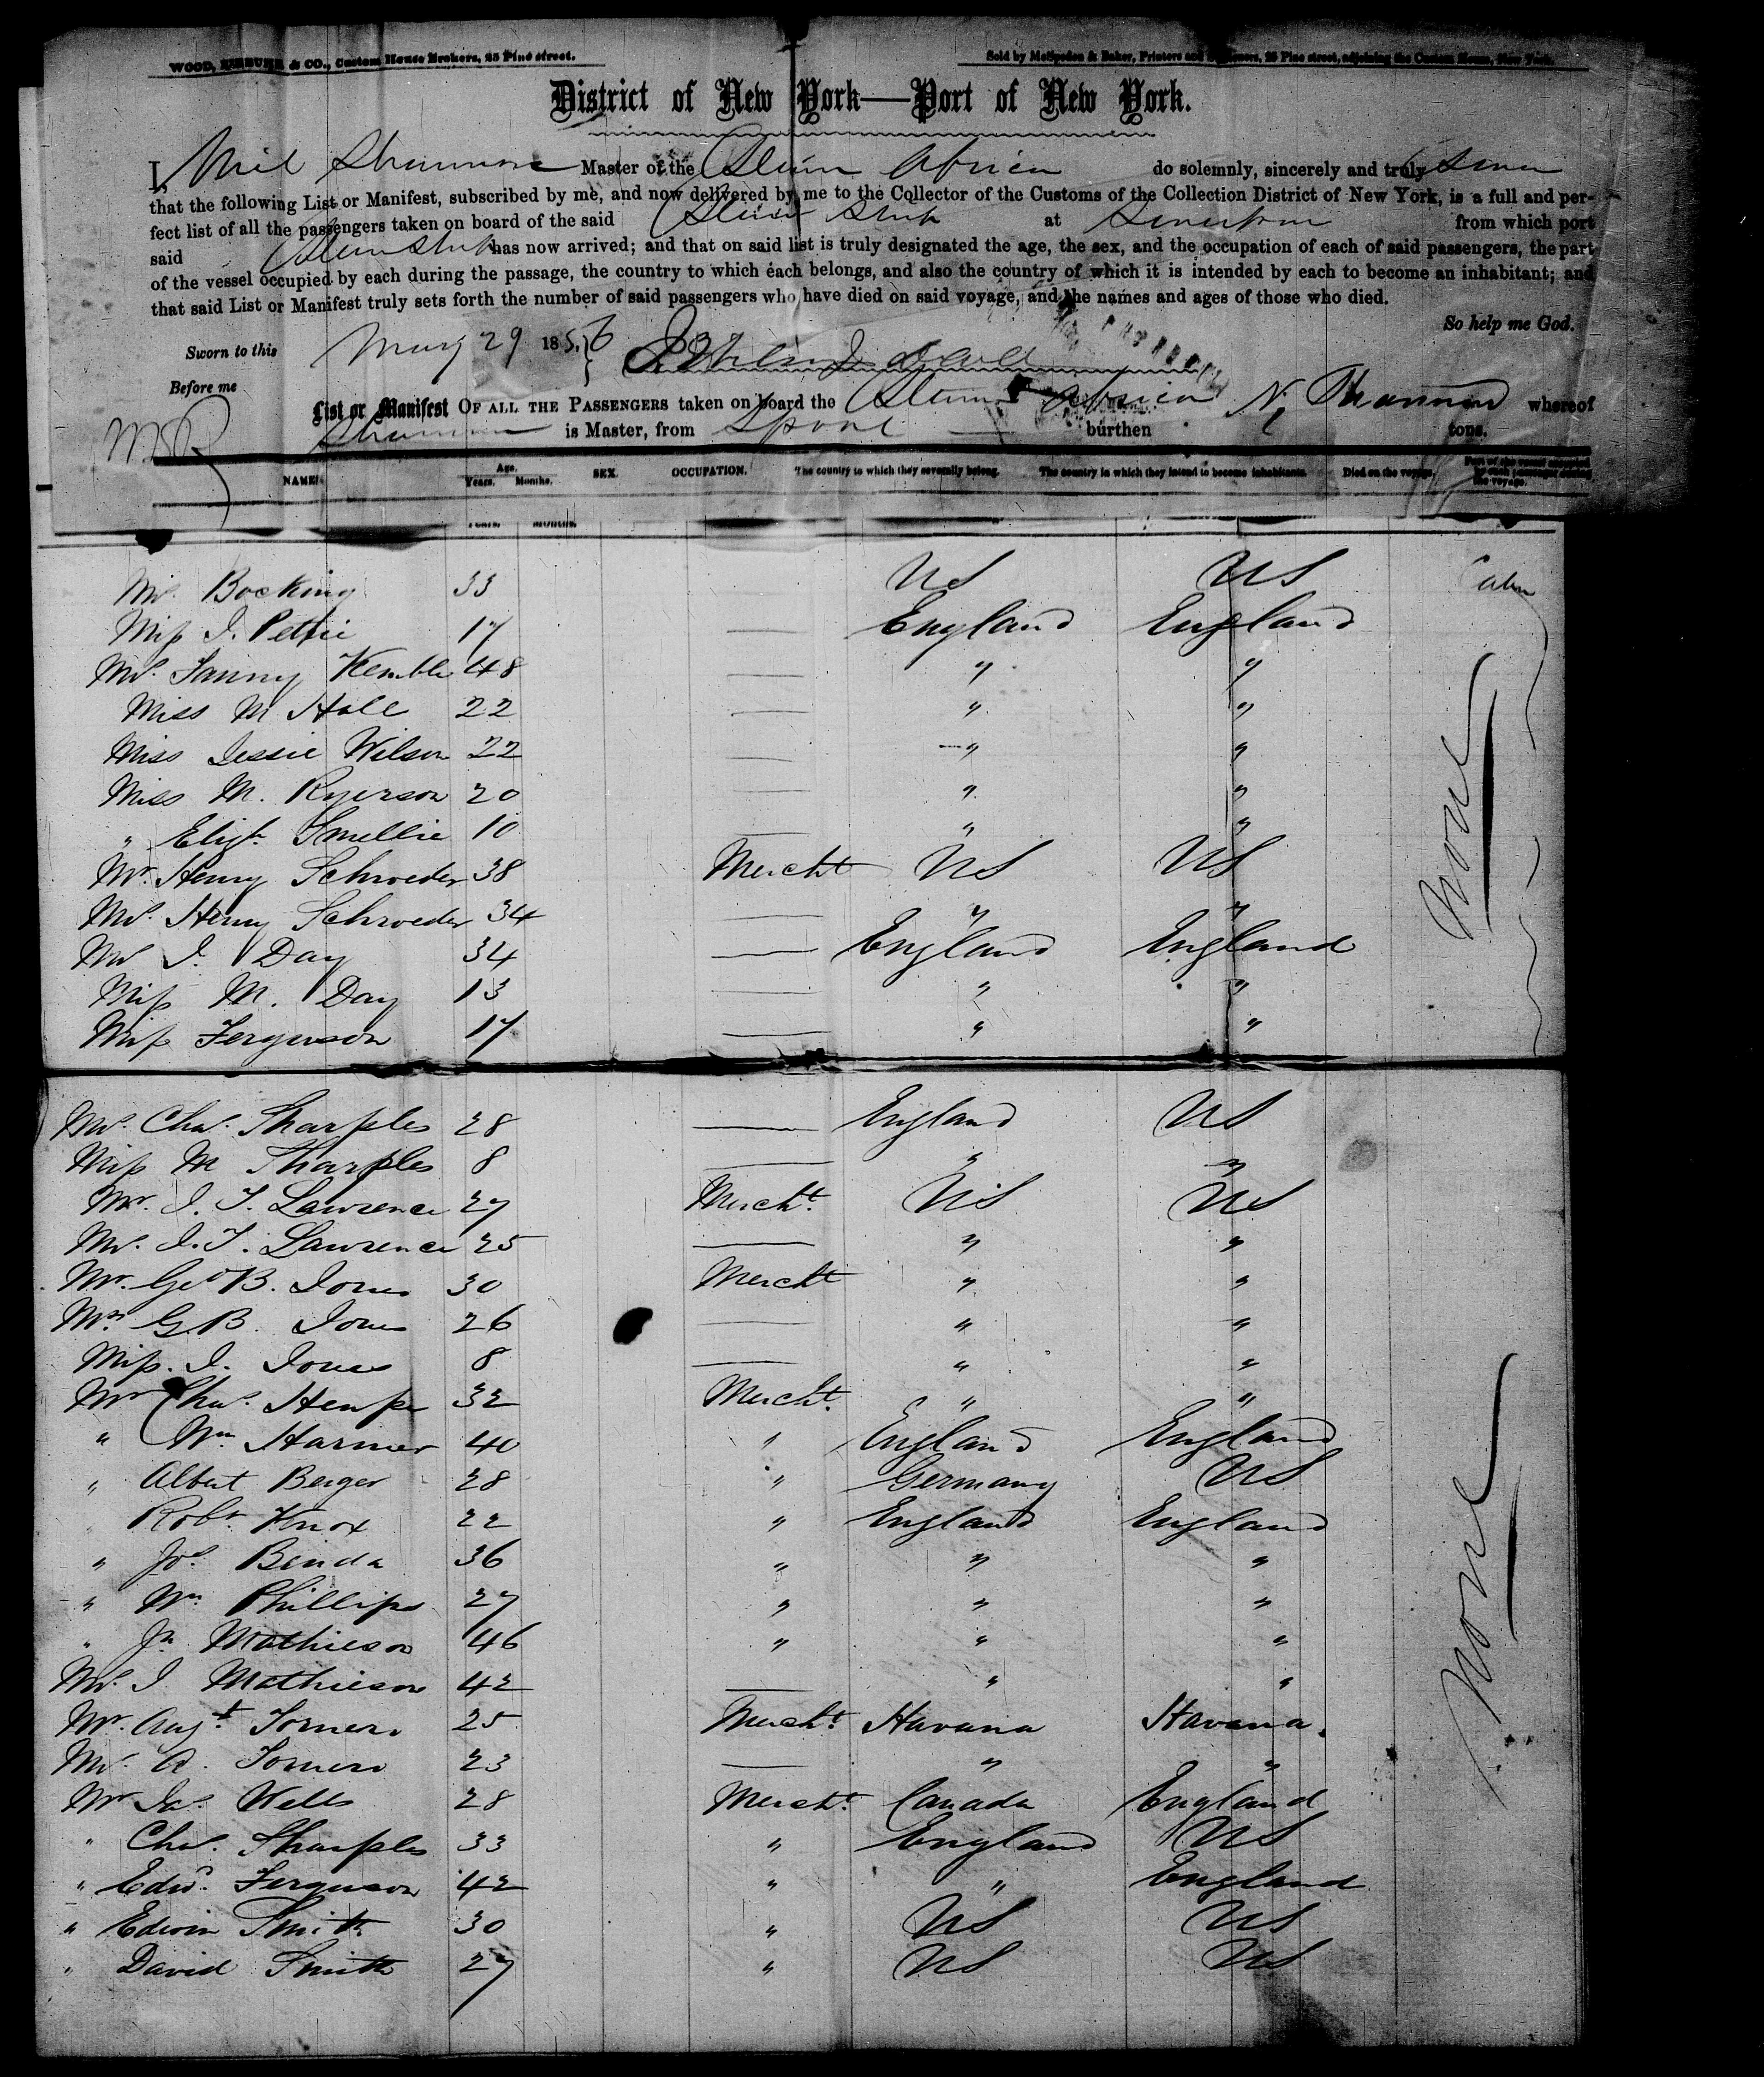 WOOD, & CO., Custom House Brokers, 25 Pine street.
Sold by McSpedon & Baker, Printers and Stationers, 25 Pine street, adjoining the Custom House, New York.
District of New York—Port of New York.
I, Neil Shannon Master of the Steam Africa do solemnly, sincerely and truly swear
that the following List or Manifest, subscribed by me, and now delivered by me to the Collector of the Customs of the Collection District of New York, is a full and per-
fect list of all the passengers taken on board of the said Steam Ship at Liverpool from which port
said Steam Ship has now arrived; and that on said list is truly designated the age, the sex, and the occupation of each of said passengers, the part
of the vessel occupied by each during the passage, the country to which each belongs, and also the country of which it is intended by each to become an inhabitant; and
that said List or Manifest truly sets forth the number of said passengers who have died on said voyage, and the names and ages of those who died.
So help me God.
Sworn to this May 29 1856
Before me
List or Manifest OF ALL THE PASSENGERS taken on board the Steam Africa N. Shannon whereof
Shannon is Master, from Lpool burthen tons.
NAMES Age. Years. Months. SEX. OCCUPATION. The country to which they severally belong. The country in which they intend to become inhabitants. Died on the voyage. Part of the vessel occupied by each passenger during the voyage.
YEARS. MONTHS.
Mrs. Bocking 33 US US Cabin
Miss J. Petrie 17 — England England
Mrs. Fanny Kemble 48 — " "
Miss M Hall 22 — " "
Miss Jessie Wilson 22 — " "
Miss M. Ryerson 20 — " "
" Elizh. Smellie 10 — " "
None
Mr. Henry Schroeder 38 Mercht US US
Mrs. Henry Schroeder 34 — " "
Mrs J. Day 34 — England England
Miss M. Day 13 — " "
Miss Ferguson 17 — " "
Mrs. Chas. Sharples 28 — England US
Miss M Sharples 8 — " "
Mr. J. T. Lawrence 27 Mercht. US US
Mrs. J. T. Lawrence 25 — " "
Mr. Geo B. Jones 30 Mercht " "
Mrs G.B. Jones 26 — " "
Miss. J. Jones 8 — " "
Mr Chas. 32 Mercht. " "
" Wm Harmer 40 " England England
" Albert Berger 28 " Germany US
" Robt. Knox 22 " England England
" Jos. Binda 36 " " "
" Wm Phillips 27 " " "
None
" Jn Mathieson 46 " " "
Mrs. J Mathieson 42 — " "
Mr. Augt. 25 Mercht. Havana Havana.
Mrs. A. 23 — " "
Mr Jas. Wells 28 Mercht. Canada England
" Chas. Sharples 33 " England US
" Edwd. Ferguson 42 " " England
" Edwin Smith 30 " US US
" David Smith 27 " US US